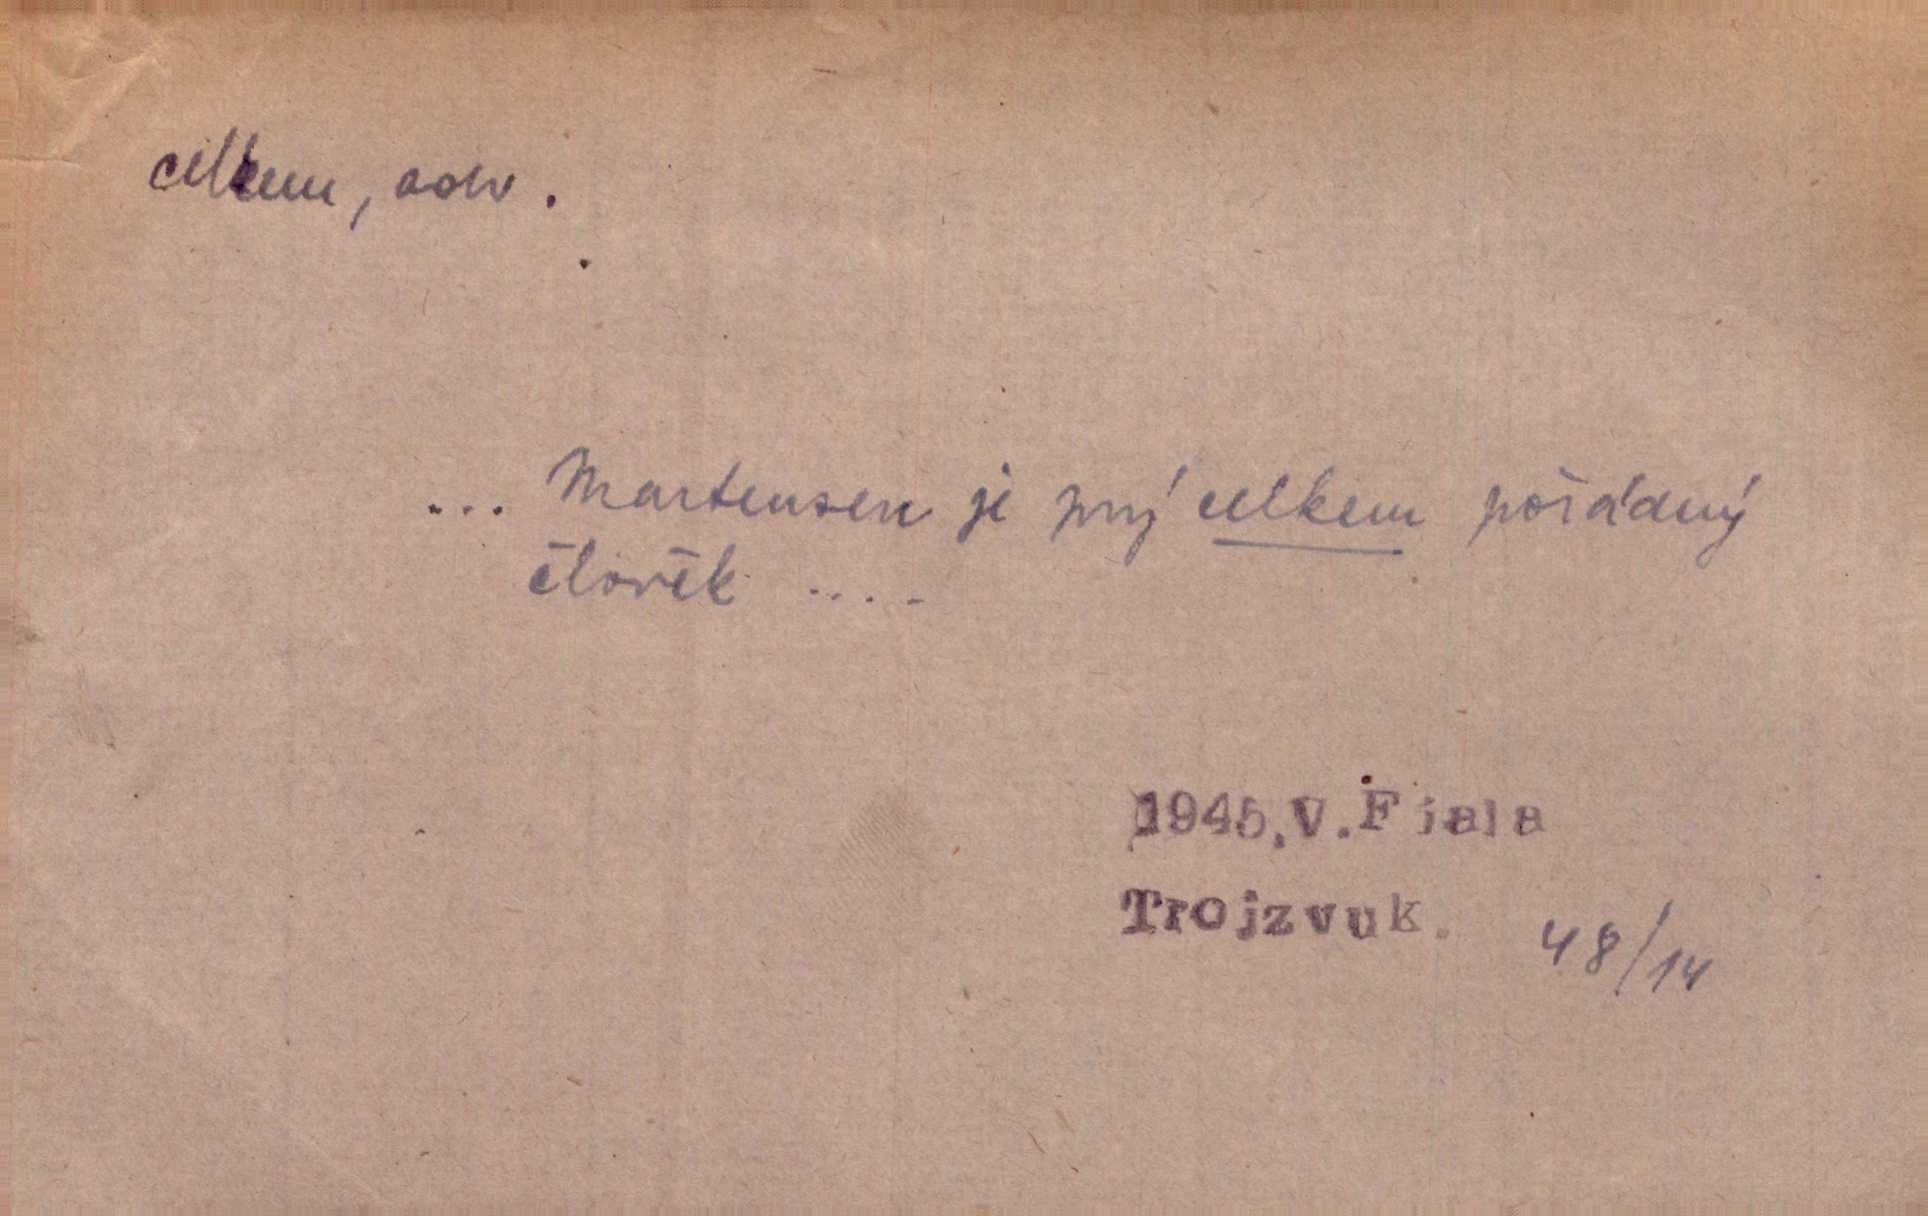 celkem, adv.
... Martensen je prý celkem pořádný
člověk ....
1945.V.Fiala
Trojzvuk.
48/14